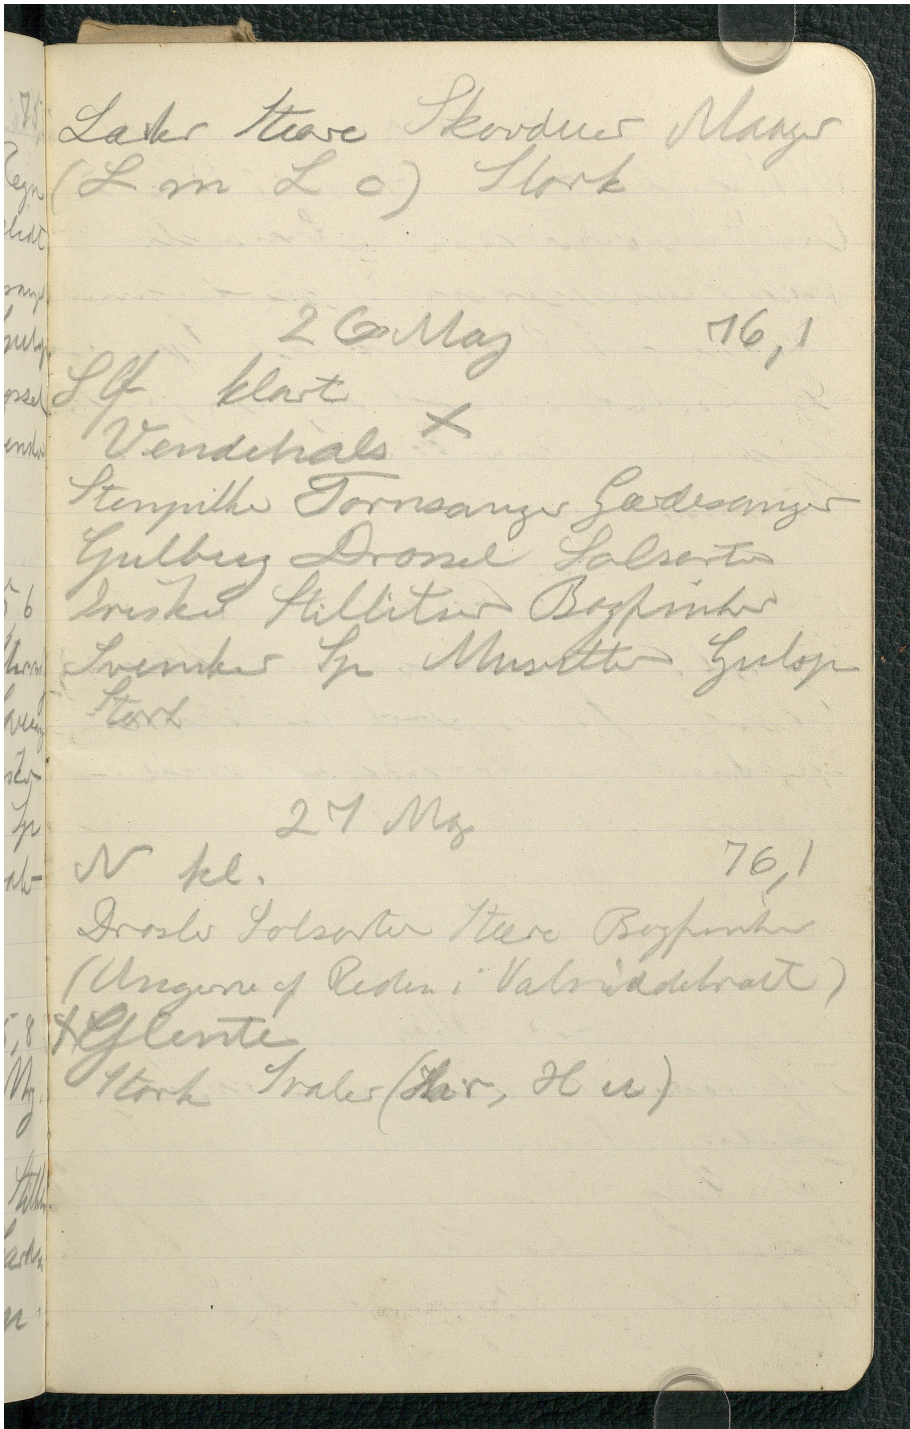 Lærker Stære Skovduer Maager
(L m L o) Stork
26 Maj 76,1
S Ø klart
Vendehals X
Stenpikke Tornsanger Gærdesanger
Gulbug Drossel Solsorte
Iriske Stillitser Bogfinker
Svensker Sp Musvitter Gulsp
Stork
27 Maj
N kl. 76,1
Drosler Solsorter Stære Bogfinker
(Ungerne af Reden i Valnøddekrattet)
Glente
Stork Svaler